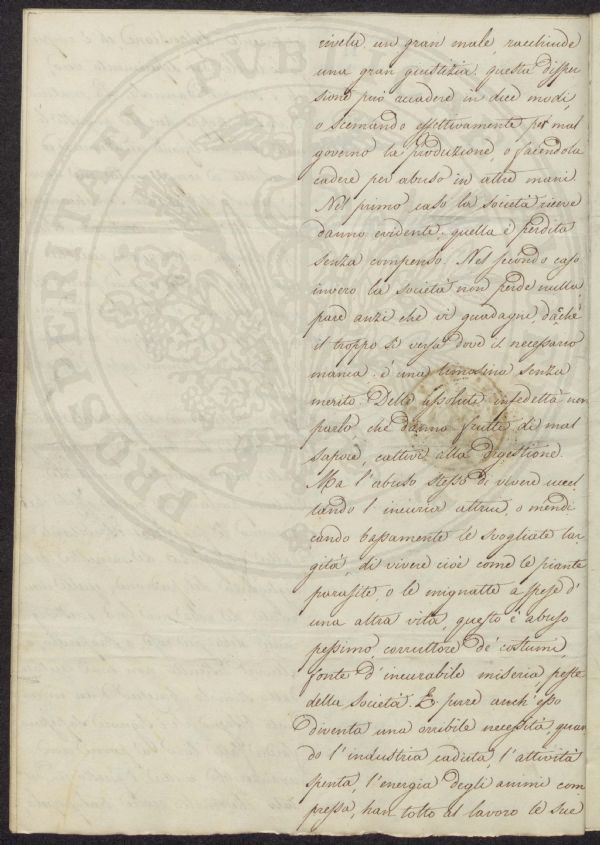 rivela un gran male, racchiude
una gran giustizia: questa disper
sione può accadere in due modi,
o scemando effettivamente per mal
governo la produzione, o facendola
cadere per abuso in altre mani
Nel primo caso la società riceve
danno evidente: quella è perdita
senza compenso. Nel secondo caso
invero la società non perde nulla,
pare anzi che vi guadagni, dacchè
il troppo si versa dove il necessario
manca: è una limosina senza
merito. Delle assolute infedeltà non
parlo che danno frutti di mal
sapore, cattivi alla digestione.
Ma l'abuso stesso di vivere uccel
lando l'incuria altrui, o mendi
cando bassamente le svogliate lar
gità, di vivere cioè come le piante
parasite, o le mignatte a spese d'
una altra vita, questo è abuso
pessimo, corruttore de' costumi,
fonte d'incurabile miseria, peste
della società. E pure anch'esso
diventa una orribile necessità quan
do l'industria caduta, l'attività
spenta, l'energia degli animi com
pressa, han tolto al lavoro le sue
PROSPERITATI PUBL